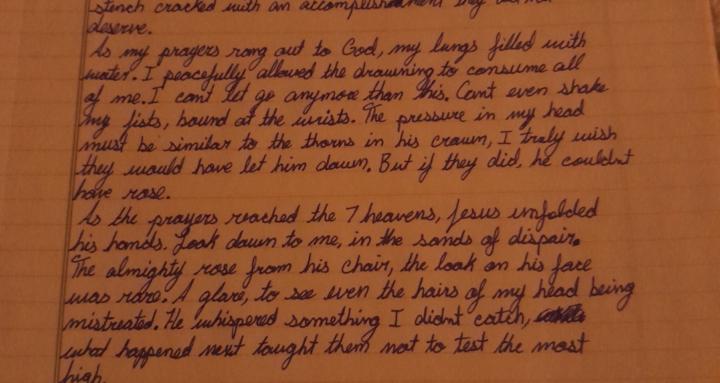 stench cracked with an accomplishment they did not
deserve.
As my prayers rang out to God, my lungs filled with
water. I peacefully allowed the drawning to consume all
of me. I cant let go anymore than this. Cant even shake
my fists, bound at the wrists. The pressure in my head
must be similar to the thorns in his crown, I truly wish
they would have let him down. But if they did, he couldnt
have rose.
As the prayers reached the 7 heavens, Jesus unfolded
his hands. Look down to me, in the sands of dispair.
The almighty rose from his chair, the look on his face
was rare. A glare, to see even the hairs of my head being
mistreated. He whispered something I didnt catch,
what happened next taught them not to test the most
high.